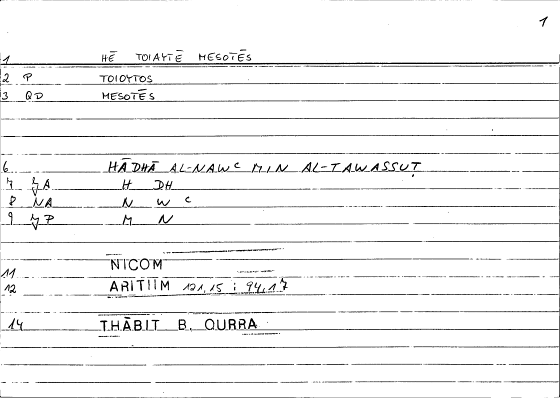 1
1 HĒ TOIAYTĒ MESOTĒS
2 P TOIOYTOS
3 QD MESOTĒS
6 HĀDHĀ AL-NAWC MIN AL-TAWASSUṬ
7 A H DH
8 NA N W C
9 P M N
11 NICOM
12 ARITIIM 121,15 ; 94,17
14 THĀBIT B. QURRA